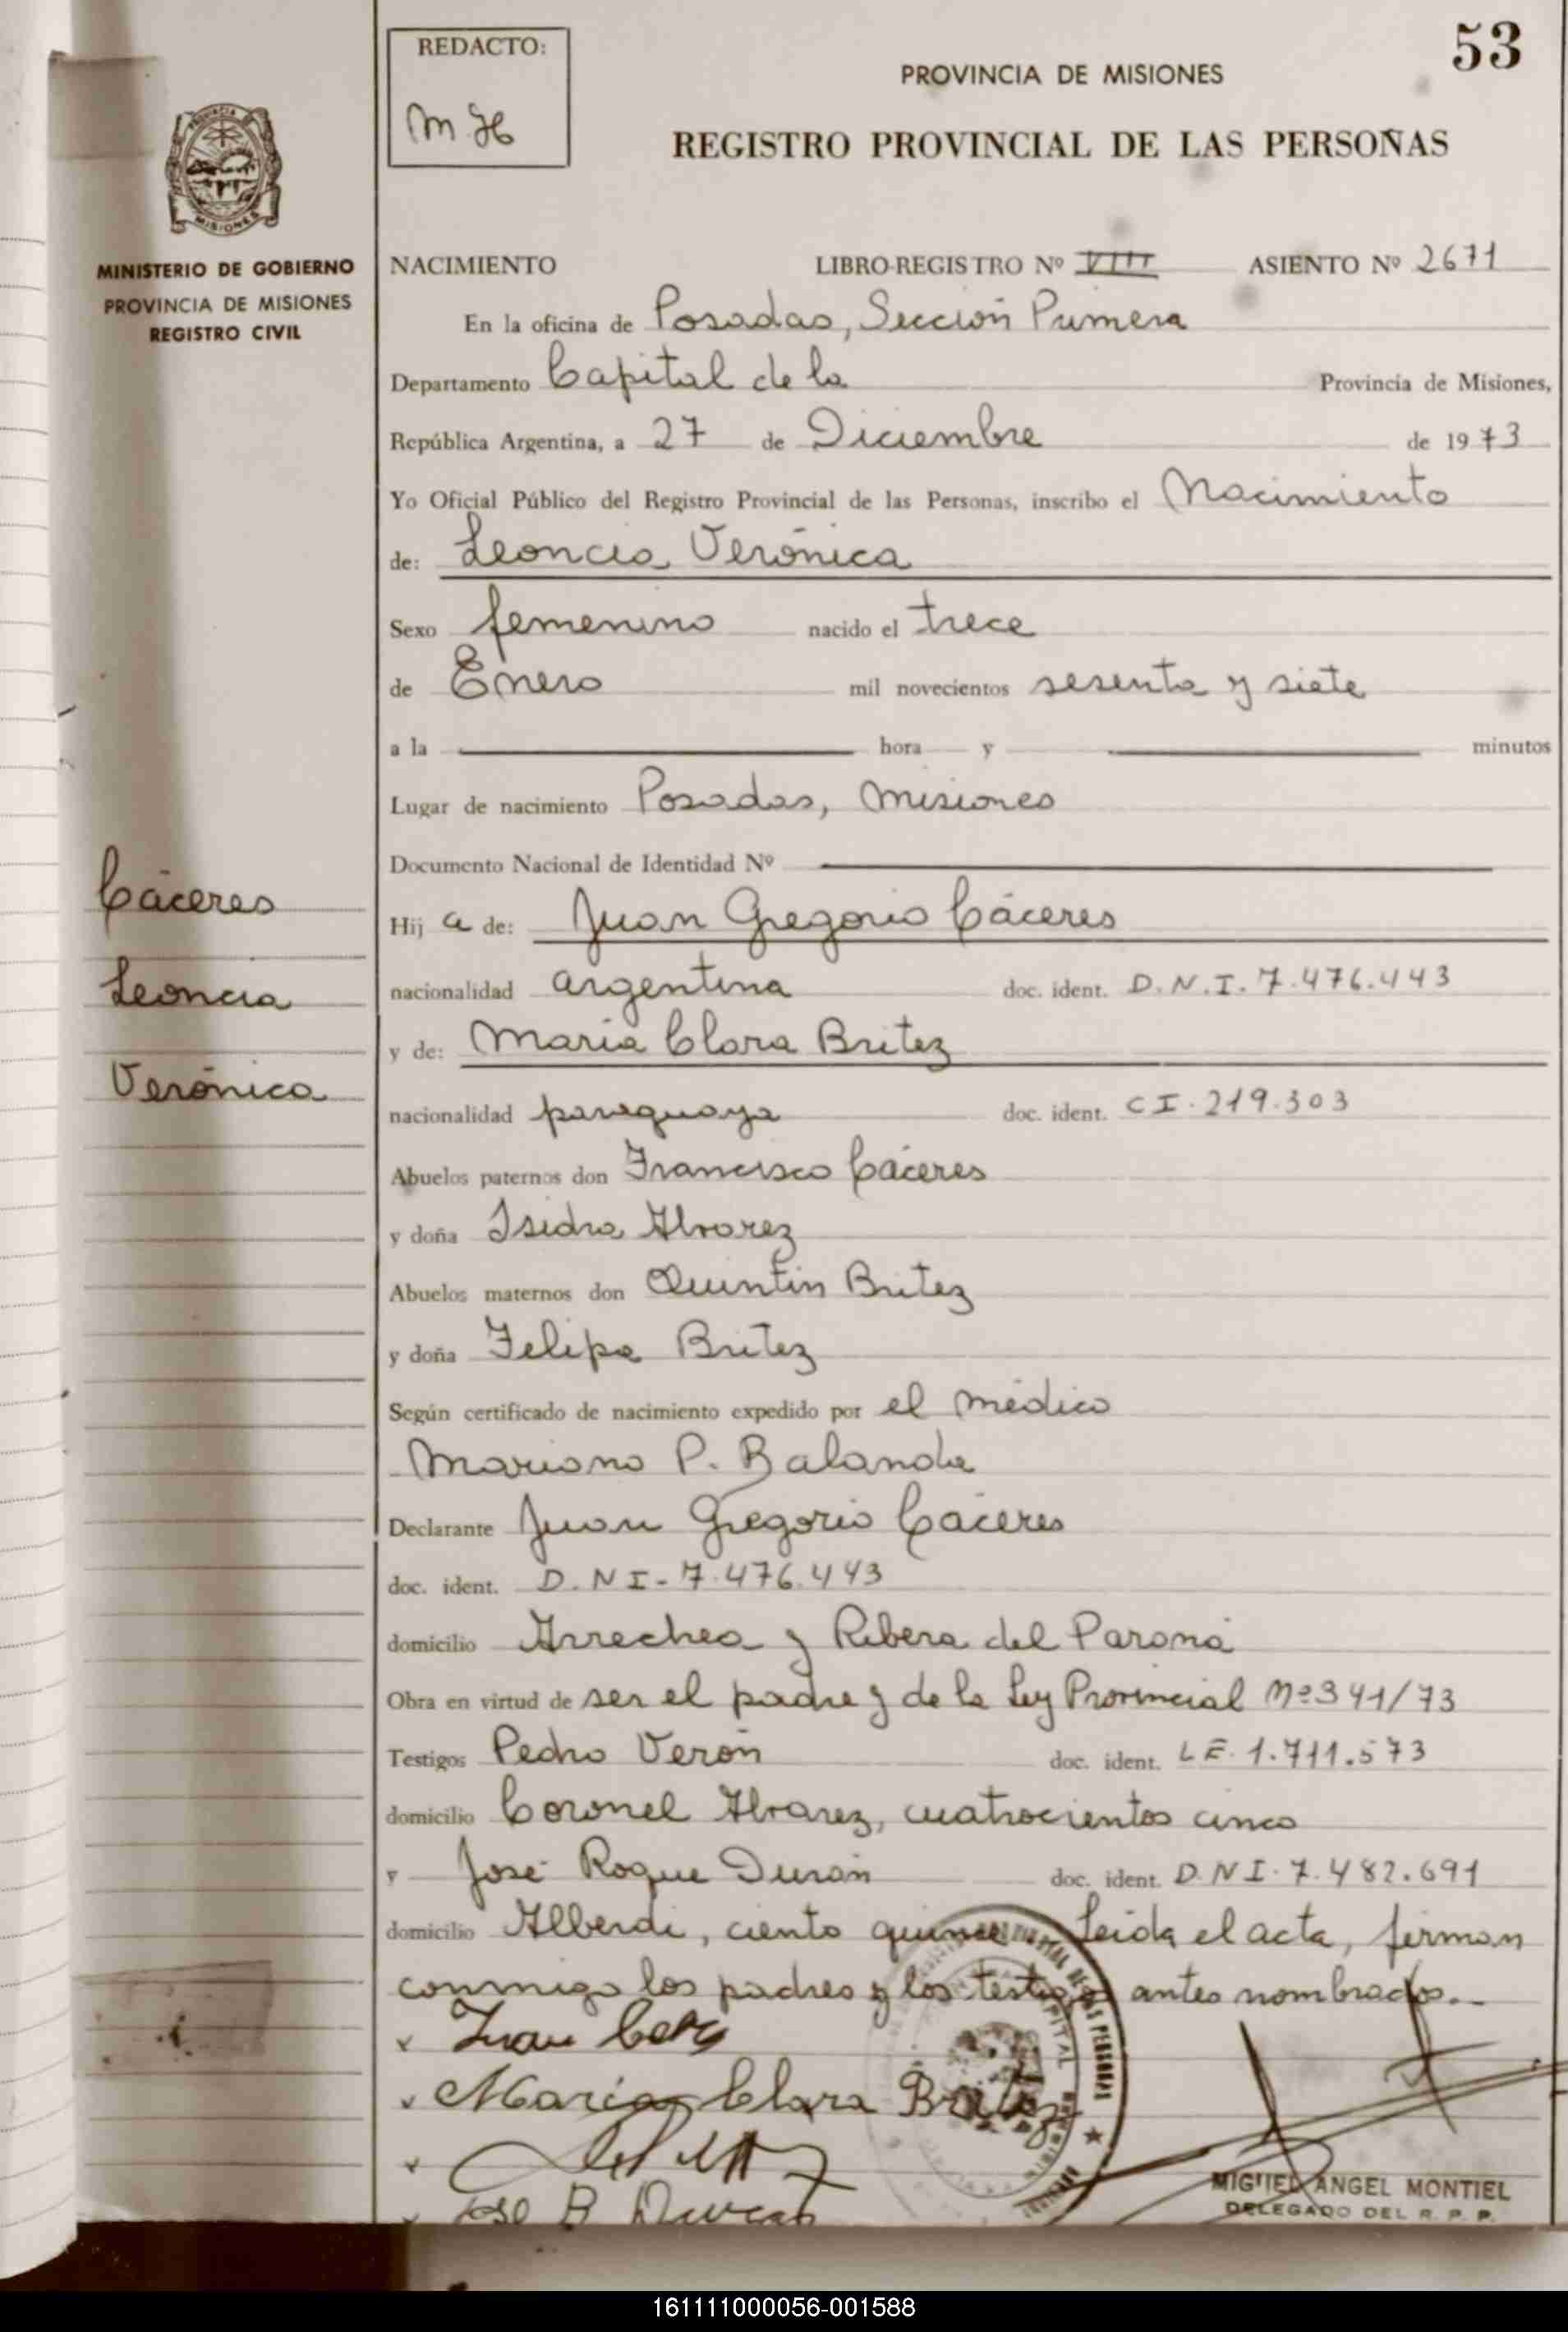 53
REDACTO:
M H
PROVINCIA DE MISIONES
REGISTRO PROVINCIAL DE LAS PERSONAS
MINISTERIO DE GOBIERNO
PROVINCIA DE MISIONES
REGISTRO CIVIL
NACIMIENTO LIBRO-REGISTRO Nº VIII ASIENTO Nº 2671
En la oficina de Posadas, Sección Primera
Departamento Capital de la Provincia de Misiones,
República Argentina, a 27 de Diciembre de 1973
Yo Oficial Público del Registro Provincial de las Personas, inscribo el Nacimiento
de: Leoncia Verónica
Sexo femenino nacido el trece
de Enero mil novecientos sesenta y siete
a la hora y minutos
Lugar de nacimiento Posadas, Misiones
Documento Nacional de Identidad Nº
Cáceres
Leoncia
Verónica
Hij a de: Juan Gregorio Cáceres
nacionalidad argentina doc. ident. D.N.I. 7.476.443
y de: María Clara Britez
nacionalidad paraguaya doc. ident. CI. 219.303
Abuelos paternos don Francisco Cáceres
y doña Isidra Alvarez
Abuelos maternos don Quintín Britez
y doña Felipa Britez
Según certificado de nacimiento expedido por el médico
Mariano P. Balanda
Declarante Juan Gregorio Cáceres
doc. ident. D.N I- 7.476.443
domicilio Arrechea y Ribera del Paraná
Obra en virtud de ser el padre y de la Ley Provincial Nº 341/73
Testigos Pedro Verón doc. ident. L E. 1.711.573
domicilio Coronel Alvarez, cuatrocientos cinco
y José Roque Durán doc. ident. D.N I. 7.482.691
domicilio Alberdi, ciento quince Leida el acta, firman
conmigo los padres y los testigos antes nombrados.-
Juan
Maria Clara Britez
Jose R Duran
MIGUEL ANGEL MONTIEL
DELEGADO DEL R. P. P.
161111000056-001588